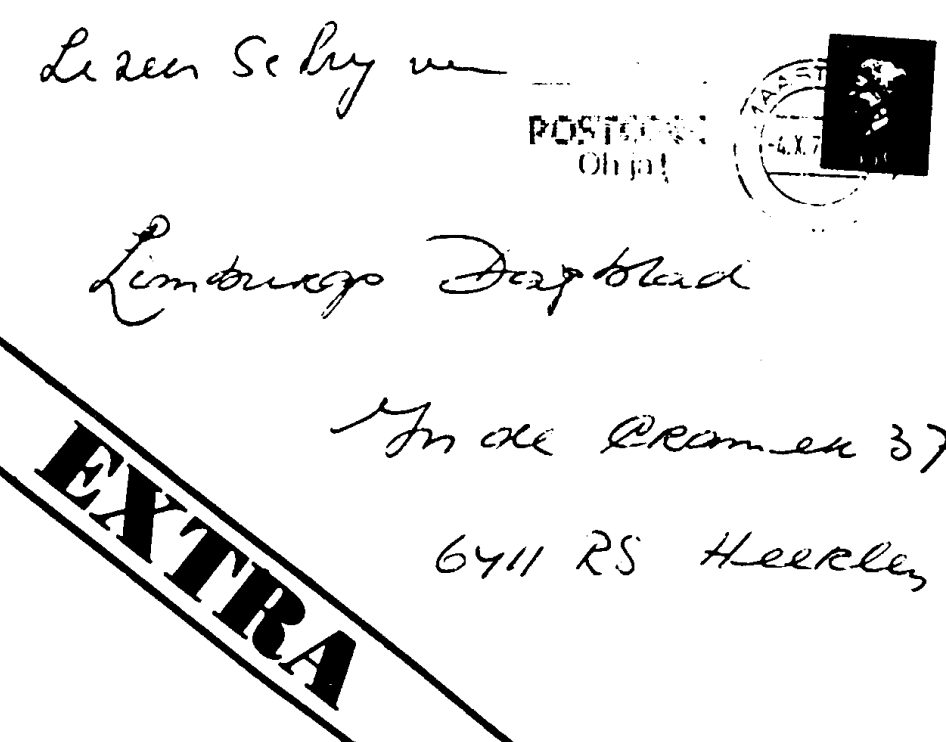 Lezers Schrijven
POSTCODE
Oh ja!
MAAST
-4.X.7
Limburgs Dagblad
In de Cramer 37
6411 RS Heerlen
EXTRA